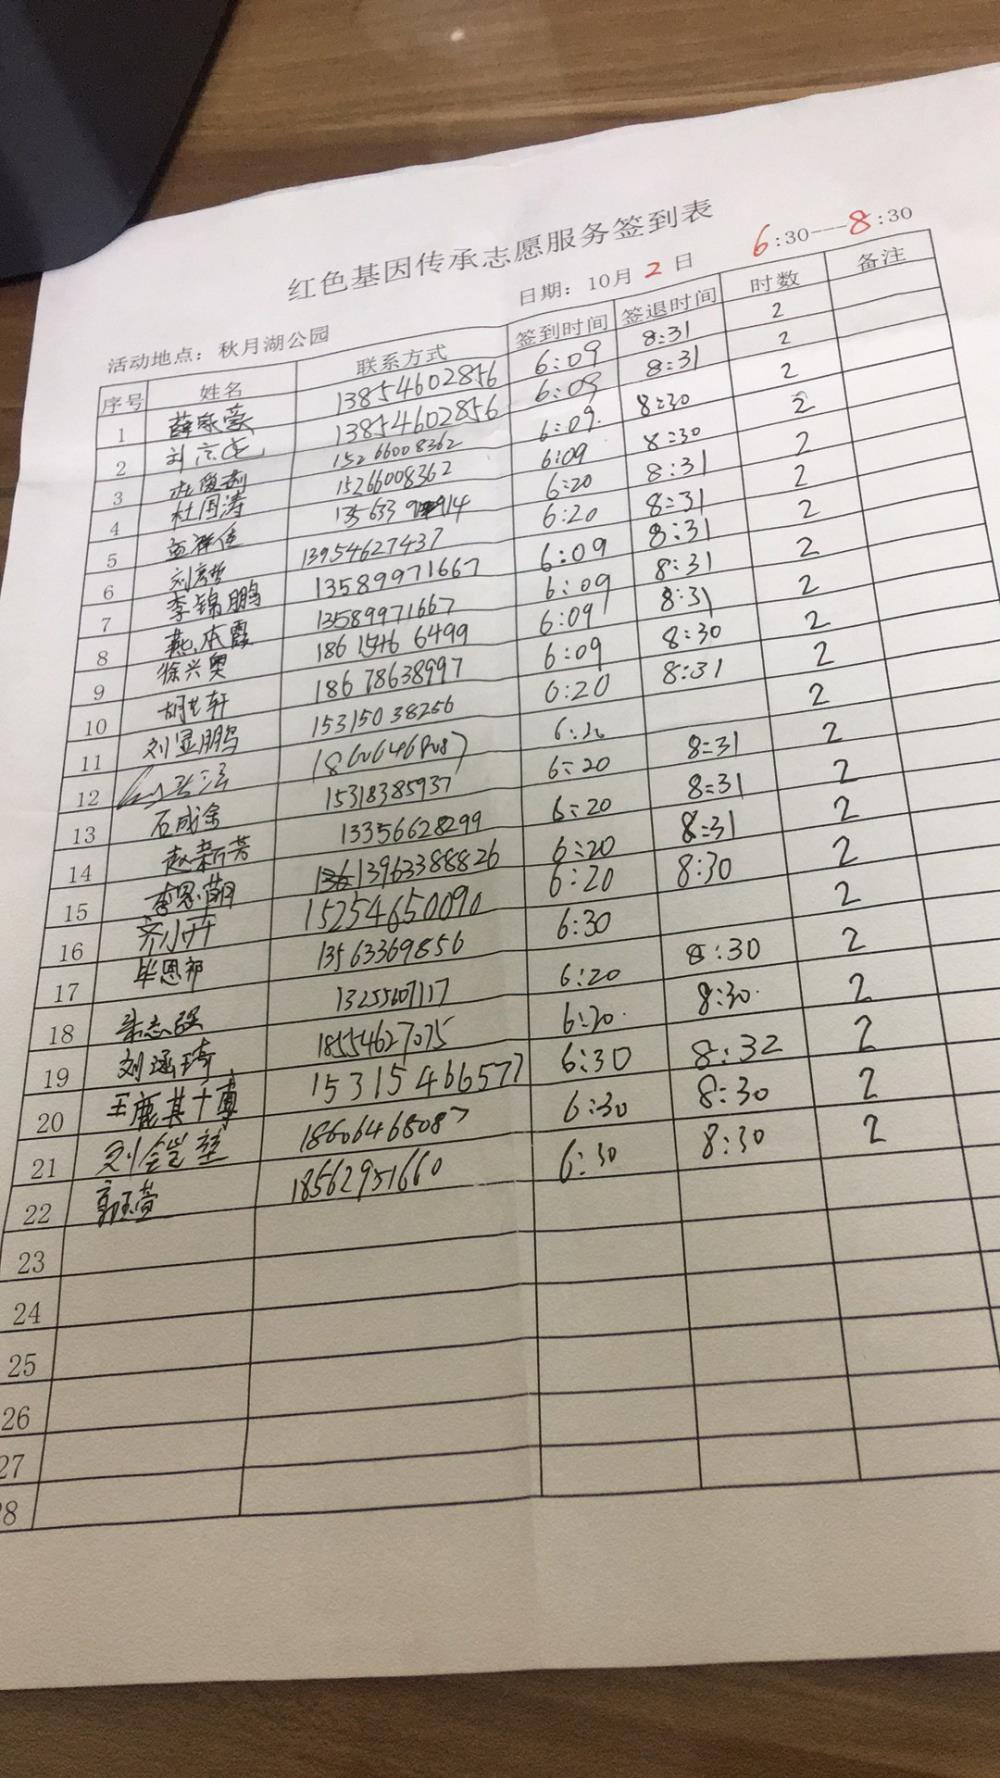 红色基因传承志愿服务签到表
活动地点：秋月湖公园 日期：10月2日 6:30---8:30
序号 姓名 联系方式 签到时间 签退时间 时数 备注
1 薛家豪 13854602856 6:09 8:31 2
2 刘 13854602856 6:09 8:31 2
3 15266008362 6:09 8:30 2
4 杜国涛 15266008362 6:09 8:30 2
5 6:20 8:31 2
6 13954627437 6:20 8:31 2
7 李锦鹏 13589971667 6:09 8:31 2
8 燕庆霞 13589971667 6:09 8:31 2
9 徐兴奥 6:09 8:31 2
10 18678638997 6:09 8:30 2
11 刘显鹏 15315038256 6:20 8:31 2
12 2
13 石成金 15318385937 6:20 8:31 2
14 赵新芳 13356628299 6:20 8:31 2
15 13963388826 6:20 8:31 2
16 齐小开 15254650090 6:20 8:30 2
17 毕恩祁 13563369856 6:30 2
18 13255607117 6:20 8:30 2
19 刘涵琦 18554627075 6:20 8:30 2
20 王鹿其十尊 15315466577 6:30 8:32 2
21 刘 18606468087 6:30 8:30 2
22 郭玉萱 18562951660 6:30 8:30 2
23
24
25
26
27
28